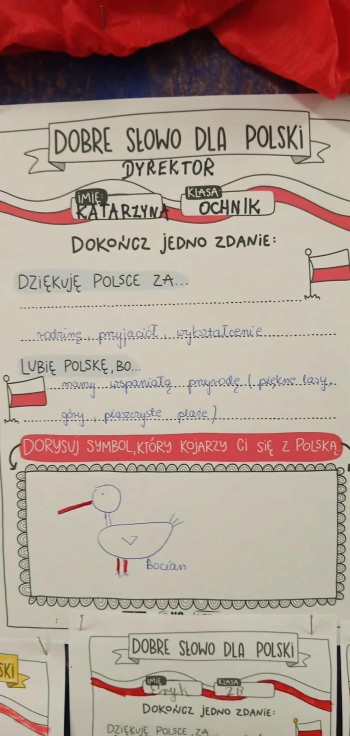 DOBRE SŁOWO DLA POLSKI
DYREKTOR
IMIĘ: KLASA
KATARZYNA OCHNIK
DOKOŃCZ JEDNO ZDANIE:
DZIĘKUJĘ POLSCE ZA...
rodzinę, przyjaciół, wykształcenie
LUBIĘ POLSKĘ, BO...
mamy wspaniałą przyrodę (piękne lasy,
góry, piaszczyste plaże)
DORYSUJ SYMBOL, KTÓRY KOJARZY CI SIĘ Z POLSKĄ
Bocian
DOBRE SŁOWO DLA POLSKI
SKI
IMIĘ: KLASA
Eryk 2B
DOKOŃCZ JEDNO ZDANIE:
DZIĘKUJĘ POLSCE ZA